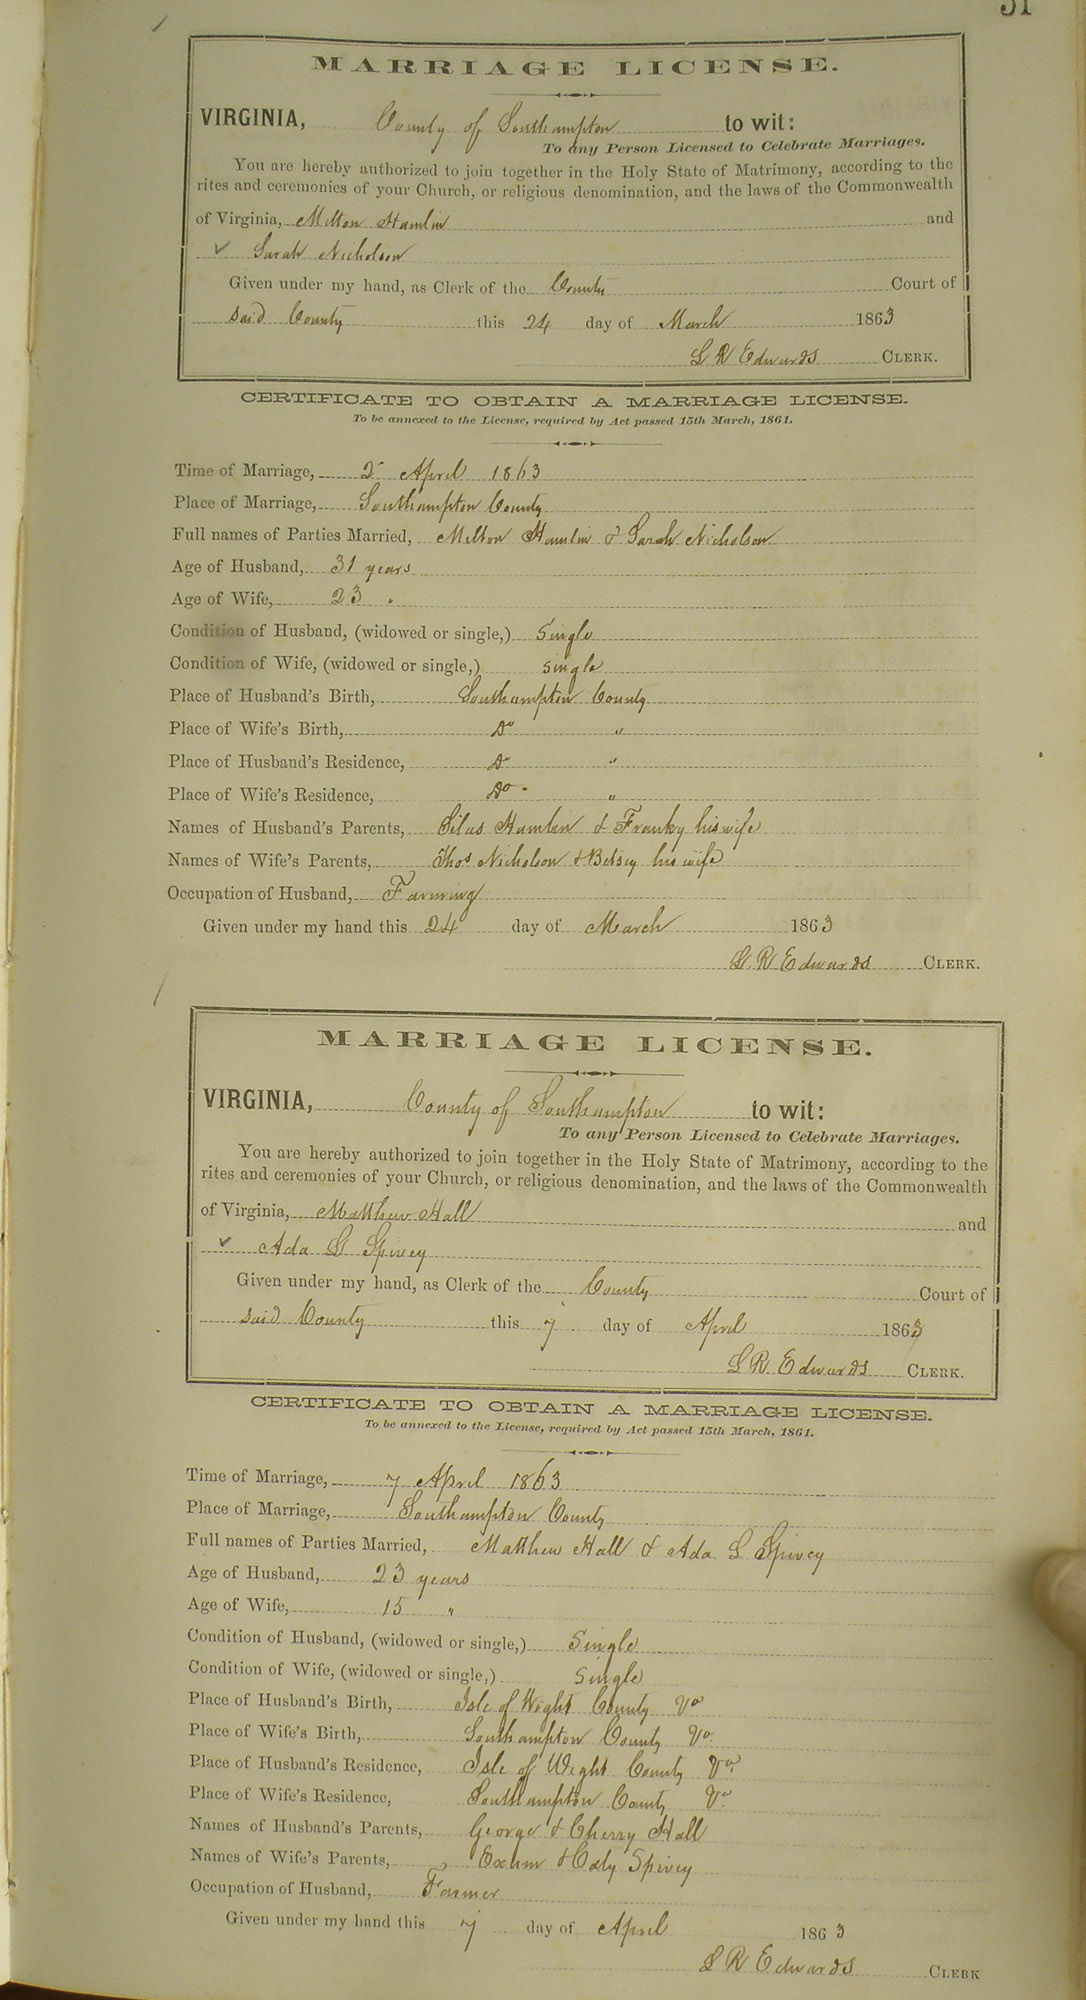 51
MARRIAGE LICENSE.
VIRGINIA, County of Southampton to wit:
To any Person Licensed to Celebrate Marriages.
You are hereby authorized to join together in the Holy State of Matrimony, according to the
rites and ceremonies of your Church, or religious denomination, and the laws of the Commonwealth
of Virginia, Milton Hamlin and
✓ Sarah Nicholson
Given under my hand, as Clerk of the County Court of
said County this 24 day of March 1863
L R Edwards CLERK.
CERTIFICATE TO OBTAIN A MARRIAGE LICENSE.
To be annexed to the License, required by Act passed 15th March, 1861.
Time of Marriage, 2 April 1863
Place of Marriage, Southampton County
Full names of Parties Married, Milton Hamlin & Sarah Nicholson
Age of Husband, 31 years
Age of Wife, 23 "
Condition of Husband, (widowed or single,) Single
Condition of Wife, (widowed or single,) single
Place of Husband's Birth, Southampton County
Place of Wife's Birth, Do "
Place of Husband's Residence, Do "
Place of Wife's Residence, Do "
Names of Husband's Parents, Silas Hamlin & Franky his wife
Names of Wife's Parents, Thos Nicholson & Betsey his wife
Occupation of Husband, Farming
Given under my hand this 24 day of March 1863
L R Edwards CLERK.
MARRIAGE LICENSE.
VIRGINIA, County of Southampton to wit:
To any Person Licensed to Celebrate Marriages.
You are hereby authorized to join together in the Holy State of Matrimony, according to the
rites and ceremonies of your Church, or religious denomination, and the laws of the Commonwealth
of Virginia, Matthew Hall and
✓ Ada L Spivey
Given under my hand, as Clerk of the County Court of
said County this 7 day of April 1863
L R Edwards CLERK.
CERTIFICATE TO OBTAIN A MARRIAGE LICENSE.
To be annexed to the License, required by Act passed 15th March, 1861.
Time of Marriage, 7 April 1863
Place of Marriage, Southampton County
Full names of Parties Married, Matthew Hall & Ada L Spivey
Age of Husband, 23 years
Age of Wife, 15 "
Condition of Husband, (widowed or single,) Single
Condition of Wife, (widowed or single,) Single
Place of Husband's Birth, Isle of Wight County Va
Place of Wife's Birth, Southampton County Va.
Place of Husband's Residence, Isle of Wight County Va.
Place of Wife's Residence, Southampton County Va
Names of Husband's Parents, George & Cherry Hall
Names of Wife's Parents, Exum & Spivey
Occupation of Husband, Farmer
Given under my hand this 7 day of April 1863
L R Edwards CLERK